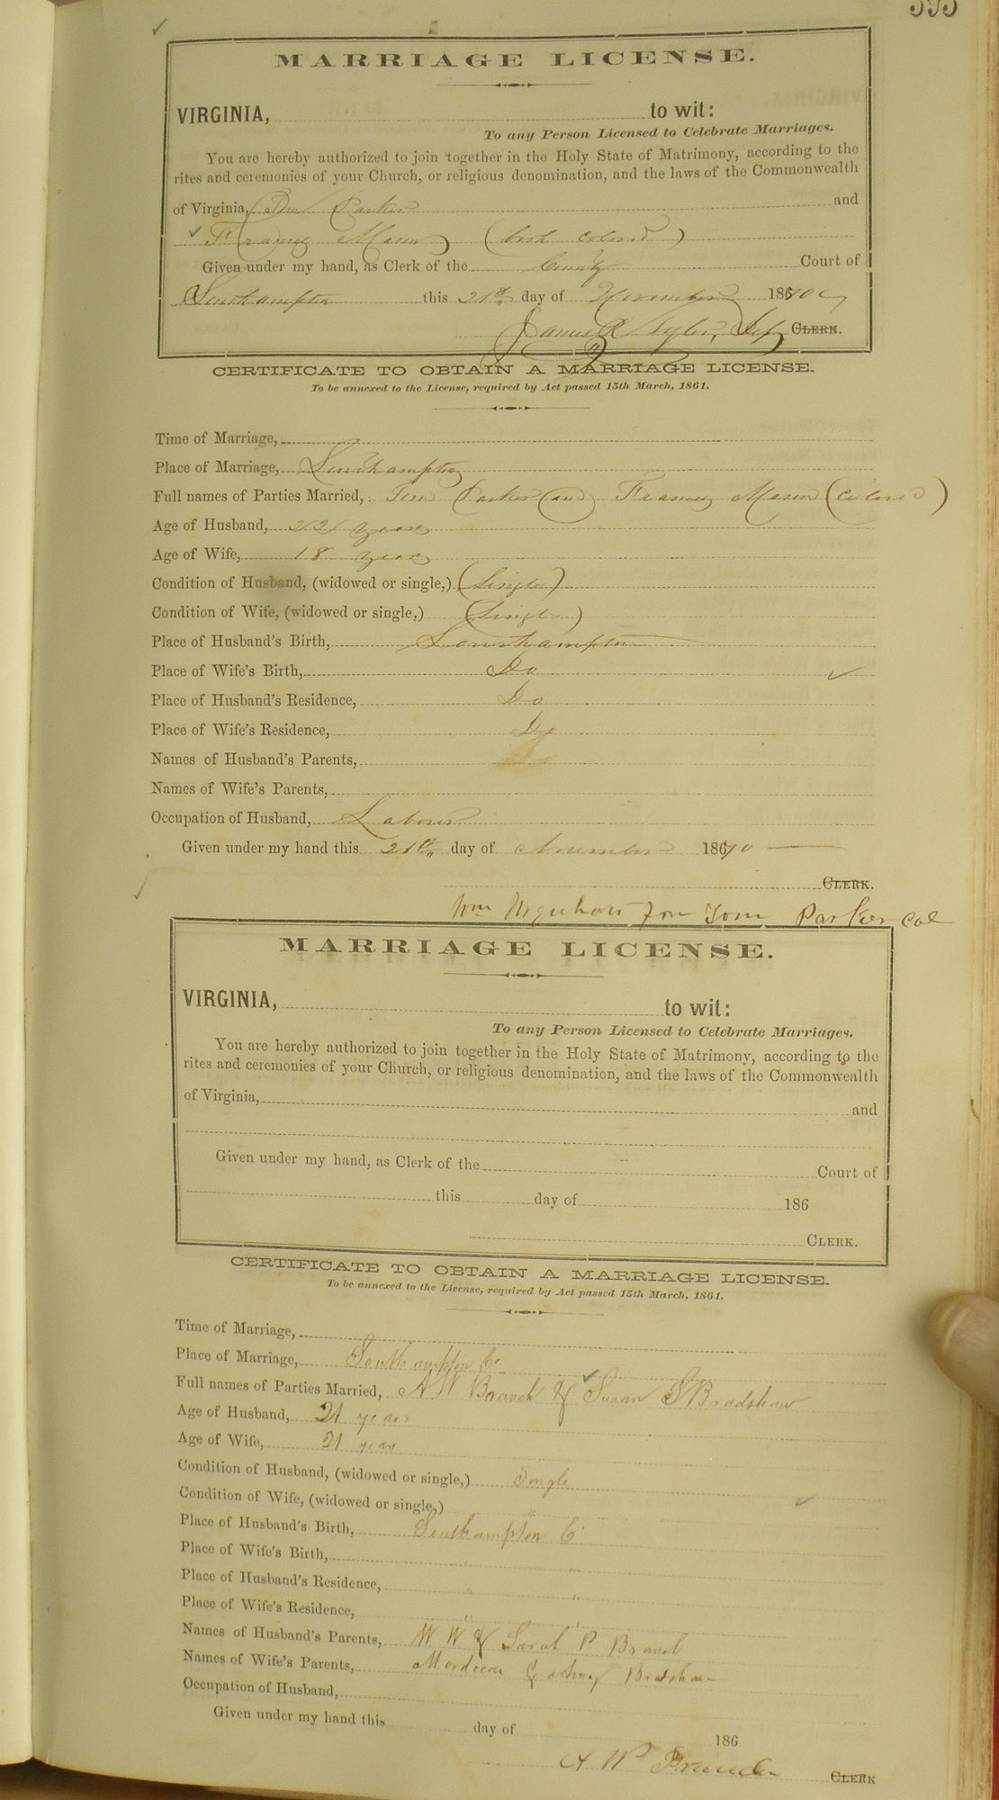 MARRIAGE LICENSE.
VIRGINIA, to wit:
To any Person Licensed to Celebrate Marriages.
You are hereby authorized to join together in the Holy State of Matrimony, according to the
rites and ceremonies of your Church, or religious denomination, and the laws of the Commonwealth
of Virginia, Parker and
Mason (both colored)
Given under my hand, as Clerk of the County Court of
Southampton this 21st day of November 1870
James R Tyler, Dep CLERK.
CERTIFICATE TO OBTAIN A MARRIAGE LICENSE.
To be annexed to the License, required by Act passed 15th March, 1861.
Time of Marriage,
Place of Marriage, Southampton
Full names of Parties Married, Tom Parker and Mason (colored)
Age of Husband, years
Age of Wife, 18 years
Condition of Husband, (widowed or single,) (Single)
Condition of Wife, (widowed or single,) (Single)
Place of Husband's Birth, Southampton
Place of Wife's Birth, Do
Place of Husband's Residence, Do
Place of Wife's Residence, Do
Names of Husband's Parents,
Names of Wife's Parents,
Occupation of Husband, Laborer
Given under my hand this 21st day of November 1870
CLERK.
Wm Urquhart for Tom Parker col
MARRIAGE LICENSE.
VIRGINIA, to wit:
To any Person Licensed to Celebrate Marriages.
You are hereby authorized to join together in the Holy State of Matrimony, according to the
rites and ceremonies of your Church, or religious denomination, and the laws of the Commonwealth
of Virginia, and
Given under my hand, as Clerk of the Court of
this day of 186
CLERK.
CERTIFICATE TO OBTAIN A MARRIAGE LICENSE.
To be annexed to the License, required by Act passed 15th March, 1861.
Time of Marriage,
Place of Marriage, Southampton Co
Full names of Parties Married, A W Branch & Susan S Bradshaw
Age of Husband, 21 years
Age of Wife, 21 years
Condition of Husband, (widowed or single,) Single
Condition of Wife, (widowed or single,) "
Place of Husband's Birth, Southampton C
Place of Wife's Birth, "
Place of Husband's Residence, "
Place of Wife's Residence, "
Names of Husband's Parents, W W & Sarah P Branch
Names of Wife's Parents, Bradshaw
Occupation of Husband,
Given under my hand this day of 186
A W Branch CLERK